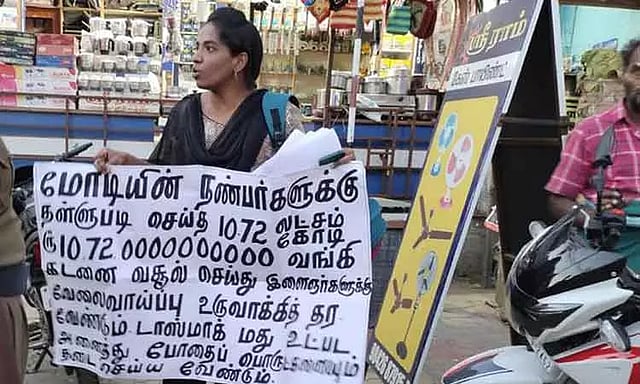 மோடியின் நண்பர்களுக்கு
தள்ளுபடி செய்த 10.72 லட்சம் கோடி
ரூ 10.72 0000000000 வங்கி
கடனை வசூல் செய்து இளைஞர்களுக்கு
வேலைவாய்ப்பு உருவாக்கித் தர
வேண்டும். டாஸ்மாக் மது உட்பட
அனைத்து போதைப் பொருட்களையும்
தடை செய்ய வேண்டும்.
ஸ்ரீ ராம்